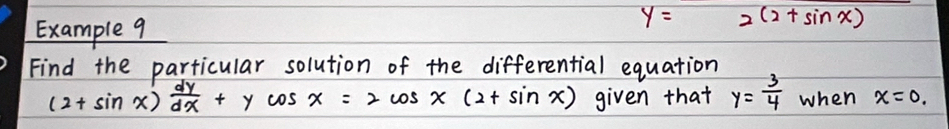 y = 2(2 + sin x)
Example 9
Find the particular solution of the differential equation
(2 + sin x) dy/dx + y cos x = 2 cos x (2 + sin x) given that y = 3/4 when x = 0.